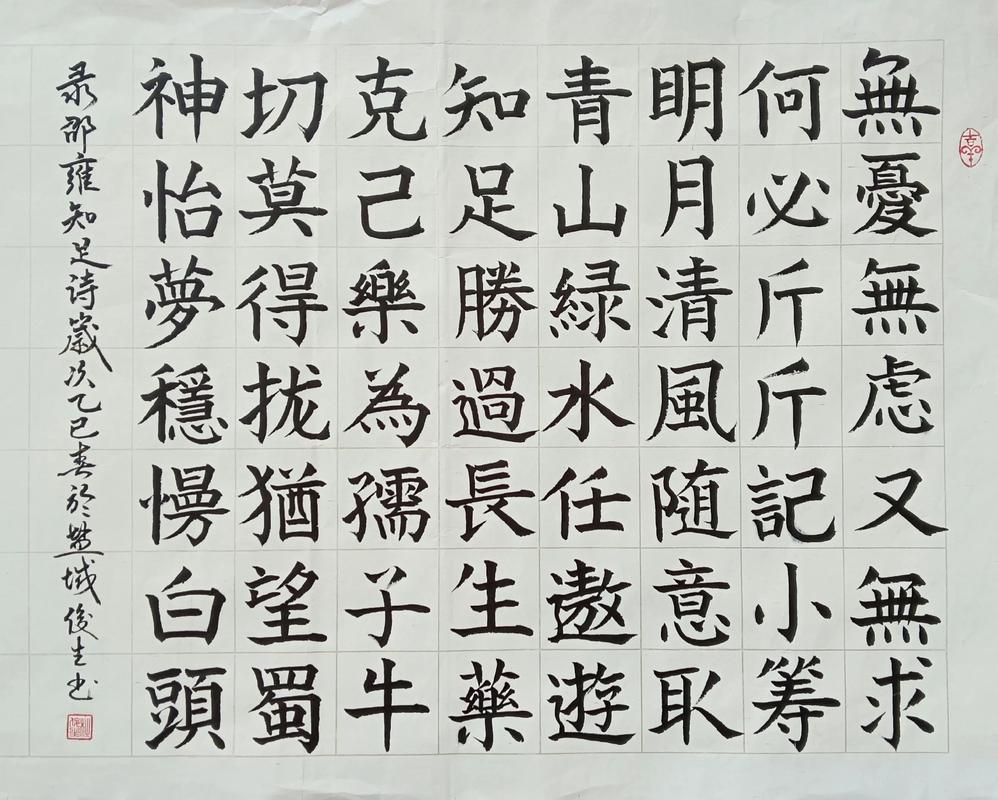 無憂無虑又無求
何必斤斤記小筹
明月清風随意取
青山緑水任遨遊
知足勝過長生藥
克己樂為孺子牛
切莫得拢猶望蜀
神怡夢穩慢白頭
录邵雍知足诗歲次乙巳春於盐城俊生书